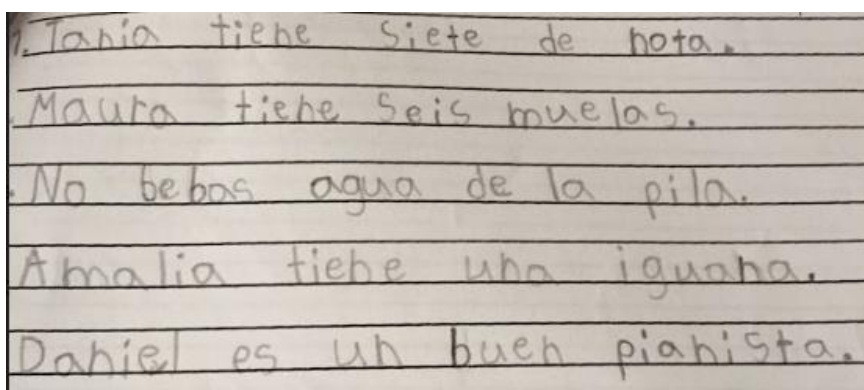 1. Tania tiene siete de nota.
Maura tiene seis muelas.
No bebas agua de la pila.
Amalia tiene una iguana.
Daniel es un buen pianista.